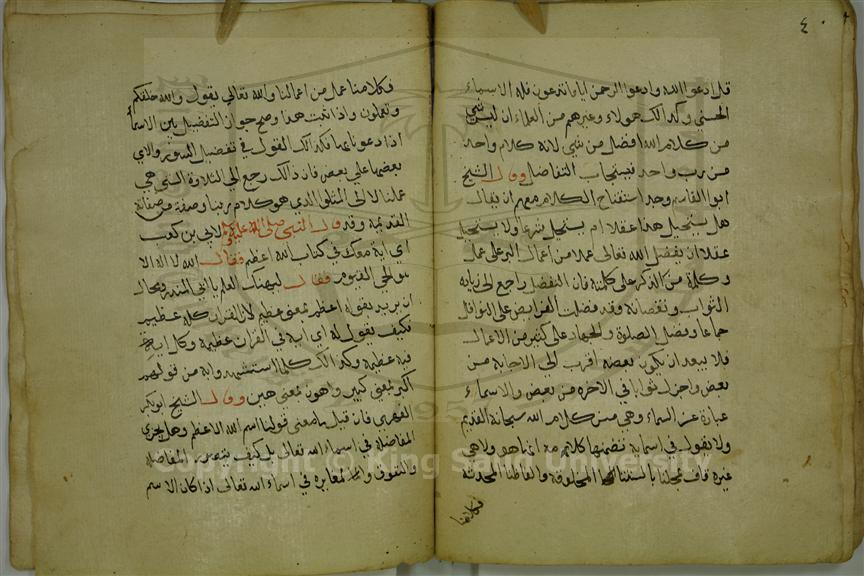 ٤
قل ادعوا الله وادعوا الرحمن اياما تدعون فله الاسماء
الحسنى وكذلك هولاء وغيرهم من العلماء ان ليس شي
من كلام الله افضل من شي لانه كلام واحد
من رب واحد فيستحاب التفاضل وقال الشيخ
ابوا القاسم وجه استفتاح الكلام معهم ان يقال
هل يستحيل هذا عقلا ام يستحيل شرعا ولا يستحيل
عقلا ان يفضل الله تعالى عملا من اعمال البر على عمل
وكلمة من الذكر على كلمة فان التفضل راجع الى زيادة
الثواب ونقصانه وقد فضلت الفرايض على النوافل
جماعا وفضل الصلوة والجهاد على كثير من الاعمال
فلا يبعد ان يكون بعضه اقرب الى الاجابة من
بعض واجزل ثوابا في الاخره من بعض والاسماء
عبارة عن السماء وهي من كلام الله سبحانه القديم
ولا يقول في اسمايه تضمنها كلامه انها هو ولا هي
غيره فان تجملنا بالسنتنا المخلوقة والفاظنا المحدثة
فكلامنا
فكلامنا عمل من اعمالنا والله تعالى يقول والله خلقكم
وتعملون واذا ثبت هذا وصح جواز التفضيل بين الاسماء
اذا دعونا بها فكذلك القول في تفضيل السور والاي
بعضها على بعض فان ذالك رجع الى التلاوة التي هي
عملنا لا الى المتلوا الذي هو كلام ربنا وصفة من صفاته
القديمة وقد قال النبي صلى الله عليه لابي بن كعب
اي اية معك في كتاب الله اعظم فقال الله لا اله الا
هو الحي القيوم فقال ليهنك العلم يا ابي المنذر ومحال
ان يريد بقوله اعظم بمعنى عظيم لان القران كله عظيم
فكيف يقول له اي اية في القران عظيمة وكل اية
فيه عظيمة وكذالك كل ما استشهد وابه من قولهم
اكبر بمعنى كبير واهون بمعنى هين وقال الشيخ ابو بكر
الفهري فان قيل ما معنى قولنا اسم الله الاعظم وهل يجري
المفاضلة في اسماء الله تعالى بل كيف يتصور المفاضلة
والتفوق والمغايره في اسماء الله تعالى اذا كان الاسم
Copyright © King Saud University